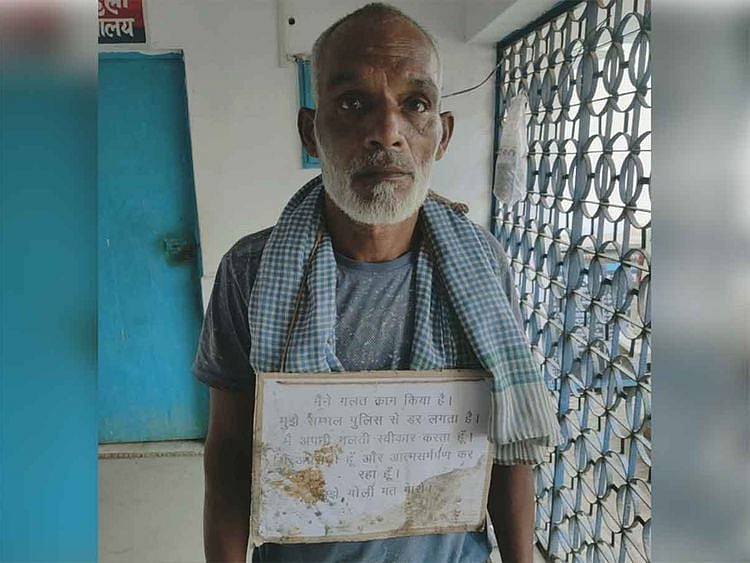 मैंने गलत काम किया है।
मुझे सम्भल पुलिस से डर लगता है।
मैं अपनी गलती स्वीकार करता हूँ।
हूँ और आत्मसमर्पण कर
रहा हूँ।
मुझे गोली मत मारो।